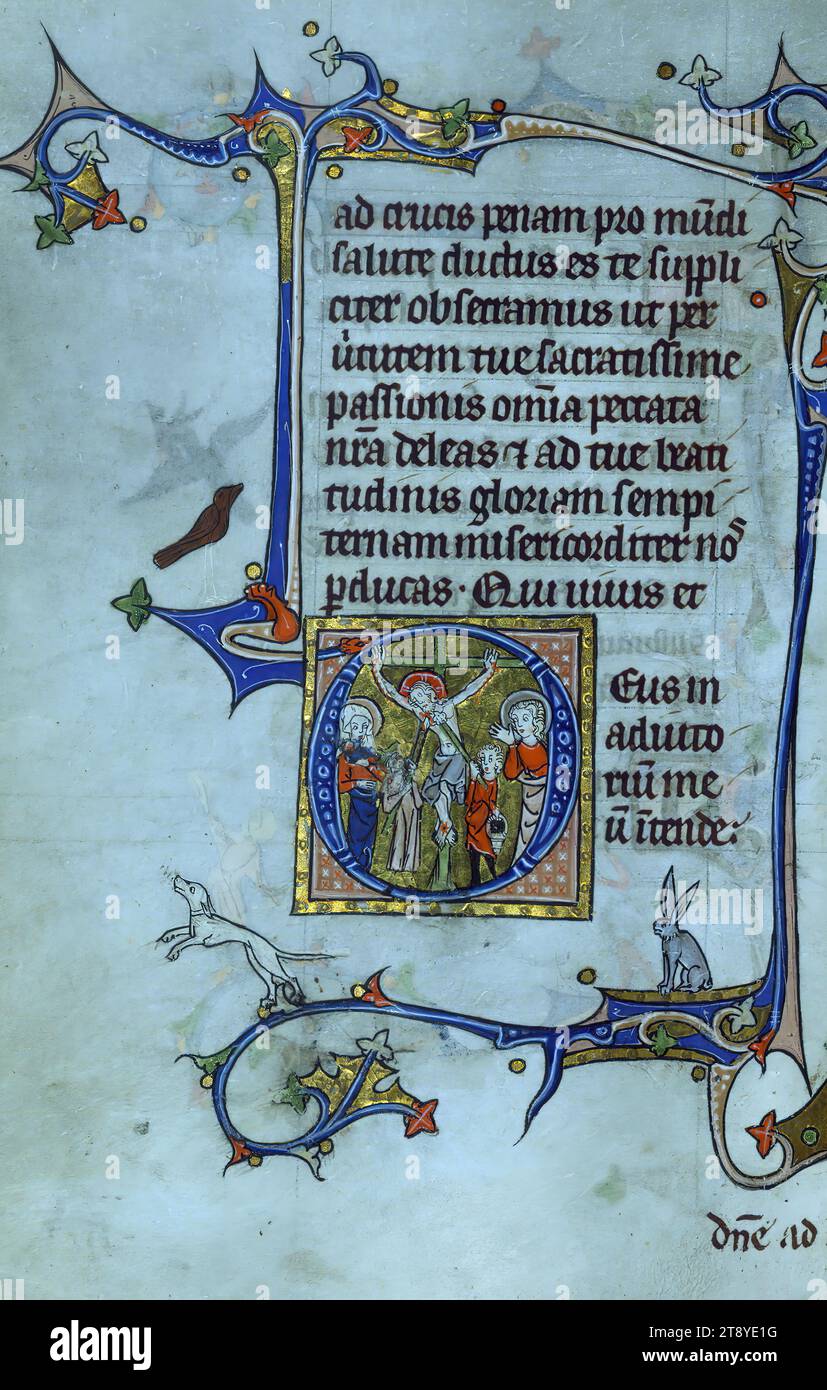 ad crucis penam pro mu̅di
salute ductus es te suppli
citer obsecramus ut per
u̍tutem tue sacratissime
passionis om̅ia peccata
nr̅a deleas ⁊ ad tue beati
tudinis gloriam sempi
ternam misericorditer noˢ
ꝑducas · Qui uiuis et
Eus in
adiuto
riu̅ me
u̅ i̅tende:
dn̅e ad
alamy
Image ID: 2T8YE1G
www.alamy.com